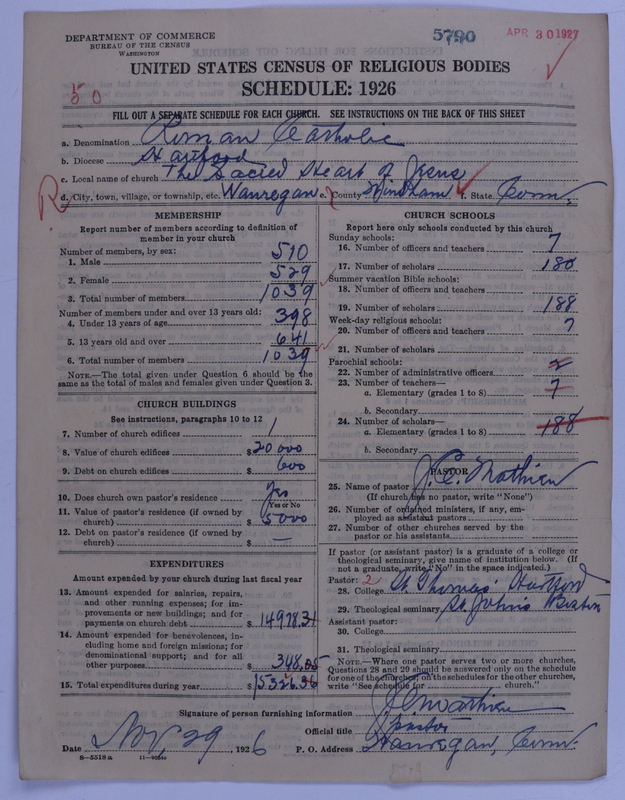 DEPARTMENT OF COMMERCE
BUREAU OF THE CENSUS
WASHINGTON
5790
APR 30 1927
UNITED STATES CENSUS OF RELIGIOUS BODIES
SCHEDULE: 1926
50
FILL OUT A SEPARATE SCHEDULE FOR EACH CHURCH. SEE INSTRUCTIONS ON THE BACK OF THIS SHEET
a. Denomination Roman Catholic
b. Diocese Hartford
c. Local name of church The Sacred Heart of Jesus
R d. City, town, village, or township, etc. Wauregan e. County Windham f. State Conn.
MEMBERSHIP
Report number of members according to definition of
member in your church
Number of members, by sex:
1. Male 510
2. Female 529
3. Total number of members 1039
Number of members under and over 13 years old:
4. Under 13 years of age 398
5. 13 years old and over 641
6. Total number of members 1039
NOTE.—The total given under Question 6 should be the
same as the total of males and females given under Question 3.
CHURCH BUILDINGS
See instructions, paragraphs 10 to 12
7. Number of church edifices 1
8. Value of church edifices $20000
9. Debt on church edifices $ 600
10. Does church own pastor's residence Yes
Yes or No
11. Value of pastor's residence (if owned by
church) $ 5000
12. Debt on pastor's residence (if owned by
church) $ —
EXPENDITURES
Amount expended by your church during last fiscal year
13. Amount expended for salaries, repairs,
and other running expenses; for im-
provements or new buildings; and for
payments on church debt $ 14978.31
14. Amount expended for benevolences, in-
cluding home and foreign missions; for
denominational support; and for all
other purposes $ 348.05
15. Total expenditures during year $15326.36
CHURCH SCHOOLS
Report here only schools conducted by this church
Sunday schools:
16. Number of officers and teachers 7
17. Number of scholars 188
Summer vacation Bible schools:
18. Number of officers and teachers
19. Number of scholars 188
Week-day religious schools:
20. Number of officers and teachers 7
21. Number of scholars
Parochial schools:
22. Number of administrative officers 2
23. Number of teachers—
a. Elementary (grades 1 to 8) 7
b. Secondary
24. Number of scholars—
a. Elementary (grades 1 to 8) 188
b. Secondary
PASTOR
25. Name of pastor J. C. Mathieu
(If church has no pastor, write "None")
26. Number of ordained ministers, if any, em-
ployed as assistant pastors
27. Number of other churches served by the
pastor or his assistants
If pastor (or assistant pastor) is a graduate of a college or
theological seminary, give name of institution below. (If
not a graduate, write "No" in the space indicated.)
Pastor: 2
28. College St. Thomas' Hartford
29. Theological seminary St. Johns Boston
Assistant pastor:
30. College
31. Theological seminary
NOTE.—Where one pastor serves two or more churches,
Questions 28 and 29 should be answered only on the schedule
for one of the churches; on the schedules for the other churches,
write "See schedule for church."
Signature of person furnishing information J C Mathieu
Official title pastor
Date Nov. 29, 1926 P. O. Address Wauregan, Conn.
8—5518a 11—